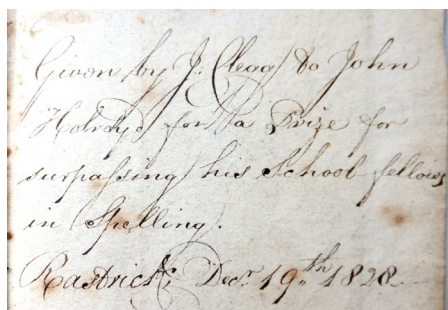 Given by J. Clegg to John
Holroyd for a Prize for
surpaſsing his School-fellows
in Spelling.
Rastrick, Decr. 19.th 1828.